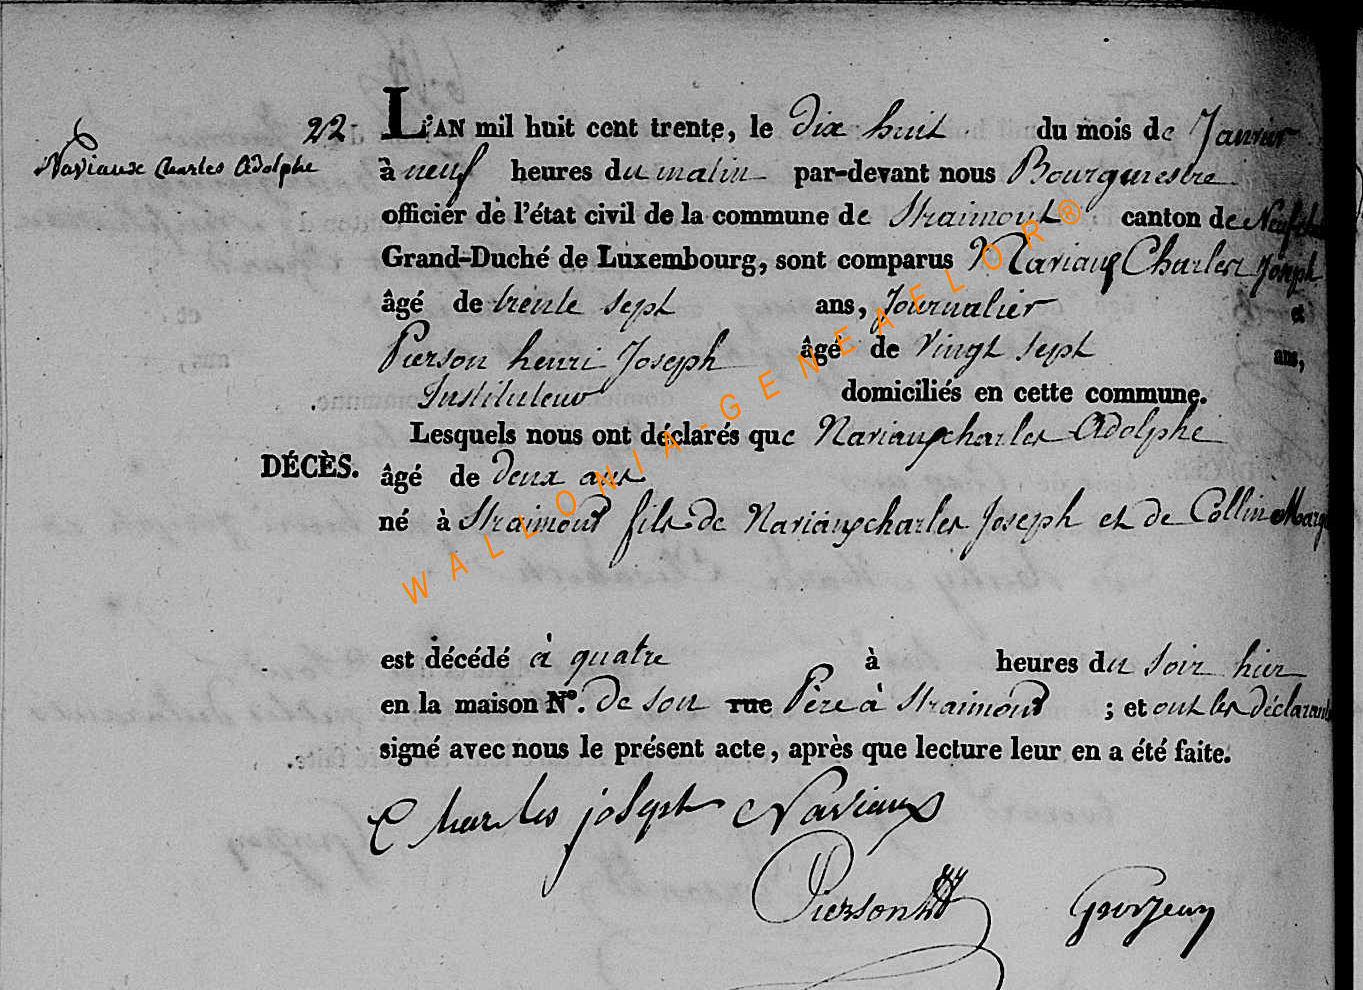 22.
Naviaux Charles Adolphe
L'AN mil huit cent trente, le dix huit du mois de Janvier
à neuf heures du matin par-devant nous Bourgmestre
officier de l'état civil de la commune de Straimont canton de Neufch
Grand-Duché de Luxembourg, sont comparus Naviaux Charles Joseph
âgé de trente sept ans, Journalier et
Pierson henri Joseph âgé de vingt sept ans,
Instituteur domiciliés en cette commune.
Lesquels nous ont déclarés que Naviaux charles Adolphe
DÉCÈS. âgé de deux ans
né à Straimont fils de Naviaux charles Joseph et de Collin Marg
est décédé à quatre à heures du soir hier
en la maison N°. de son rue Père à Straimont ; et ont les déclarants
signé avec nous le présent acte, après que lecture leur en a été faite.
Charles joseph Naviaux
Pierson
WALLONIA-GENEAELOR®